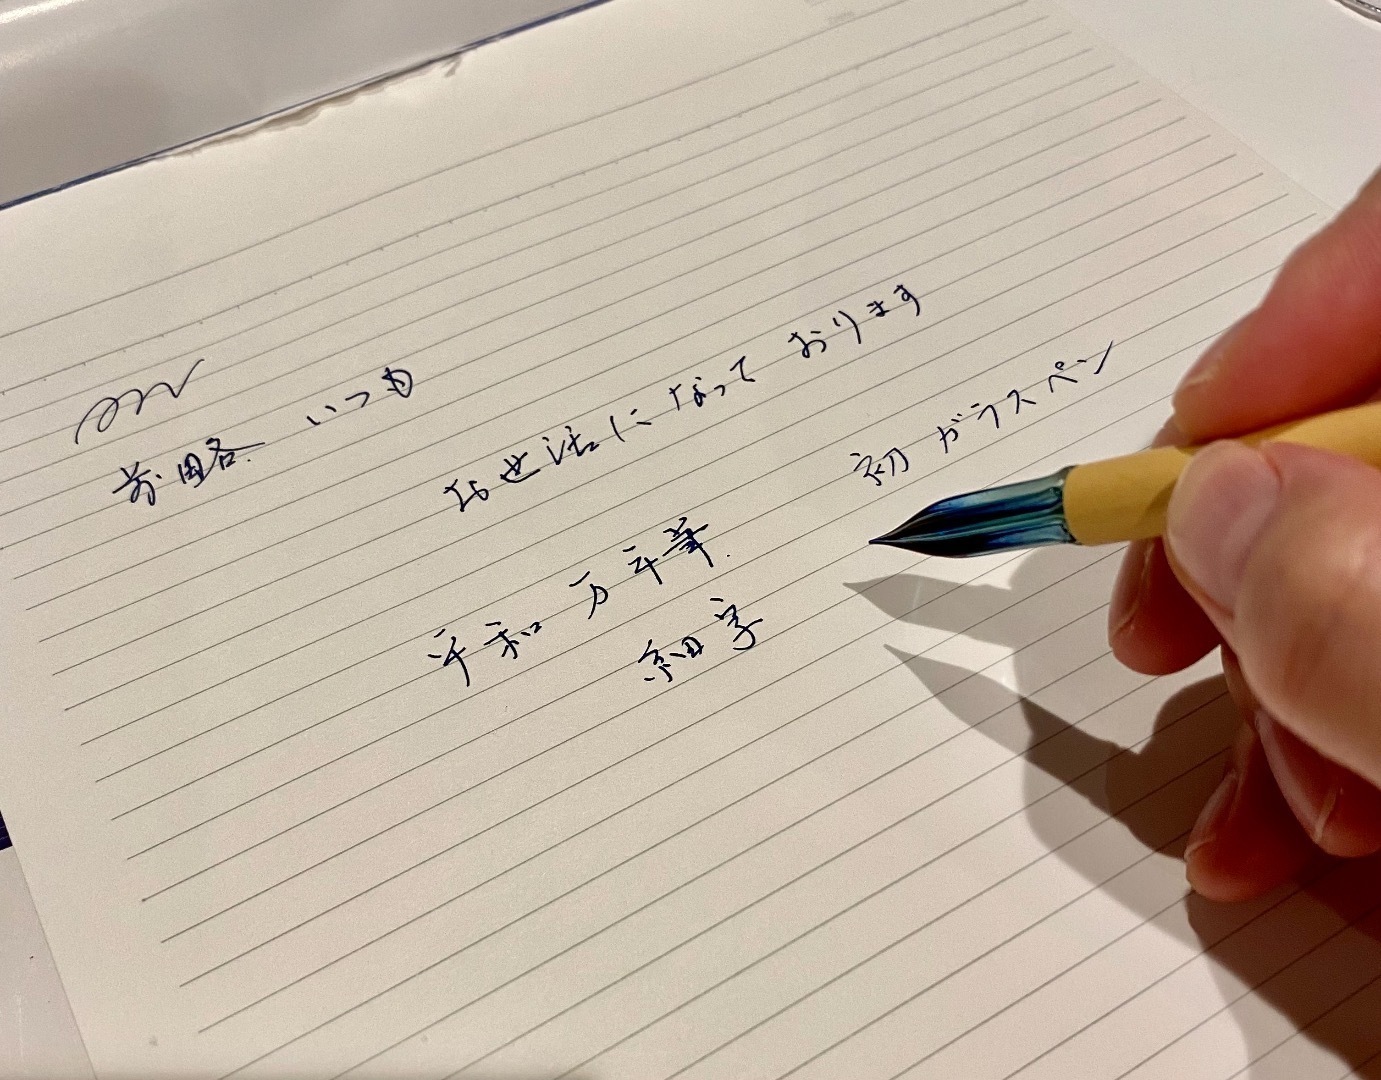 前略 いつも
お世話になっております
初ガラスペン
平和万年筆
細字